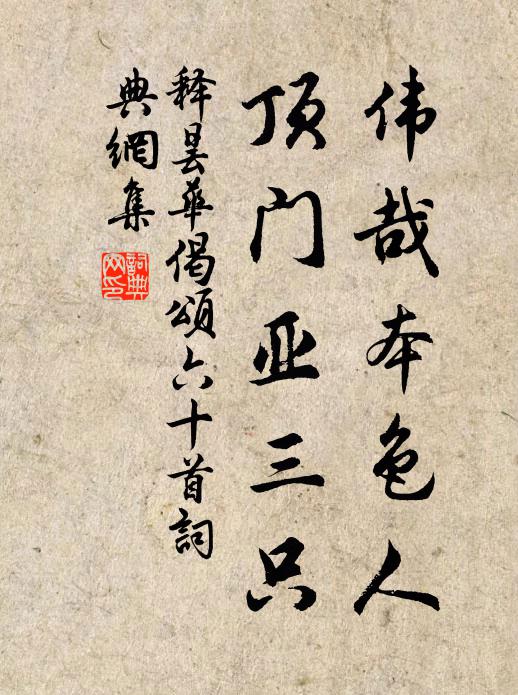 伟哉本色人
顶门亚三只
释昙华偈颂六十首詞
典網集
詞典
网印